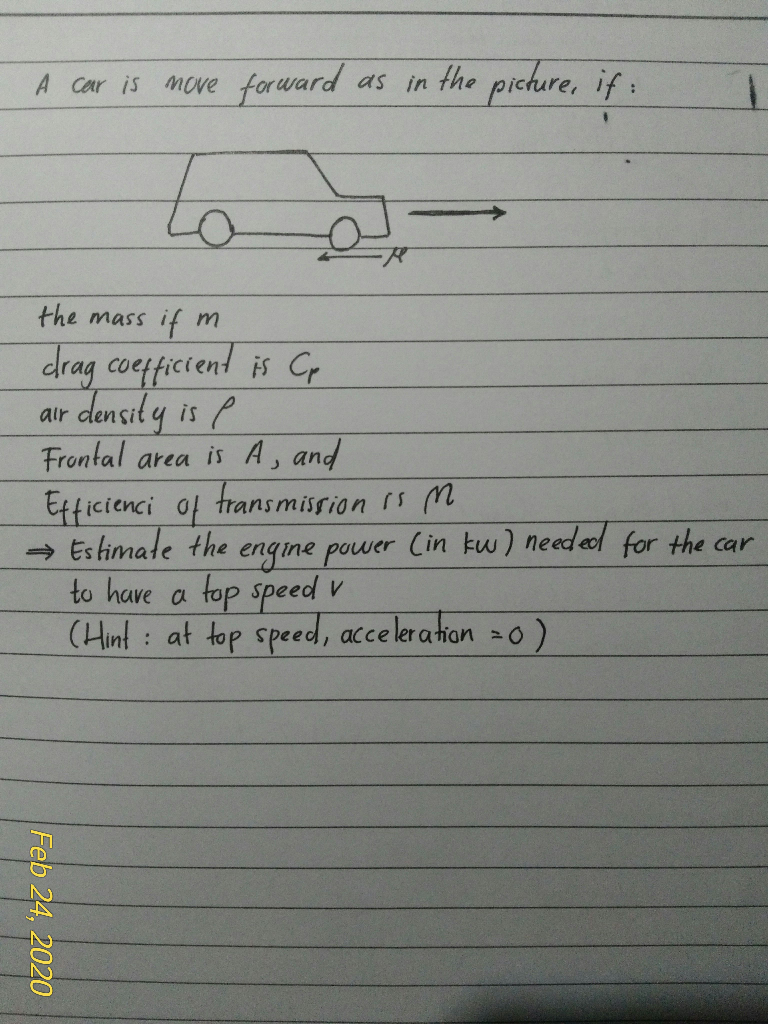 A car is move forward as in the picture, if :
μ
the mass if m
drag coefficient is Cp
air density is ρ
Frontal area is A, and
Efficienci of transmission is η
⇒ Estimate the engine power (in kw) needed for the car
to have a top speed v
(Hint : at top speed, acceleration = 0 )
Feb 24, 2020